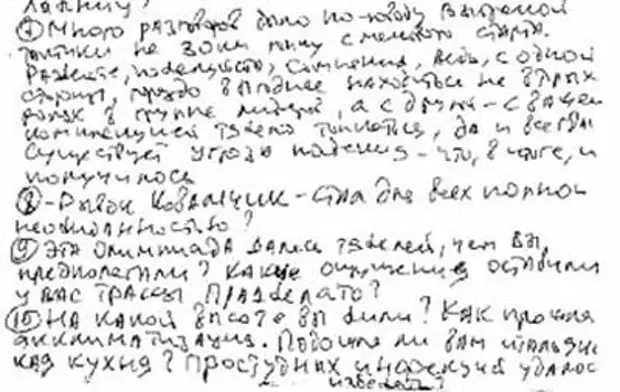 ⑦ Много разговоров было по-поводу выбранной
тактики не
Развейте, пожалуйста, сомнения, ведь, с одной
стороны, гораздо выгоднее находиться на вторых
ролях в группе лидеров, а с другой – с вашей
комплекцией тяжело толкаться, да и всегда
существует угроза падения – что, в итоге, и
получилось
⑧ – Рывок Ковальчик – стал для всех полной
неожиданностью?
⑨ Эта Олимпиада далась тяжелей, чем вы
предполагали? Какие ощущения оставили
у вас трассы Праджелато?
⑩ На какой высоте вы жили? Как прошла
акклиматизация. Подошла ли вам итальянс
кая кухня? Простудных инфекций удалос
избежать?